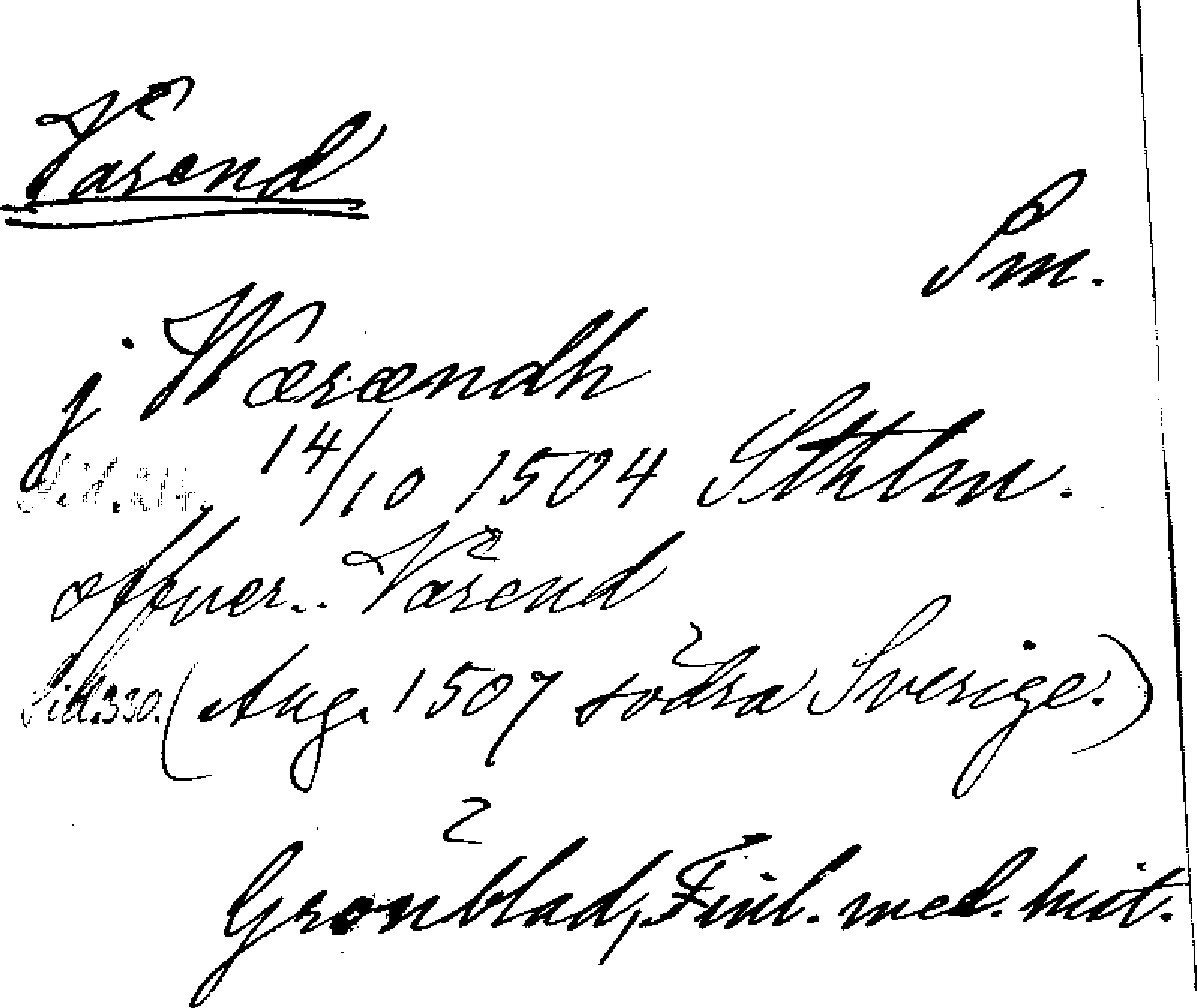 Värend
Sm.
j Wærændh
14/10 1504 Sthlm.
offuer.. Värend
Sid.330. (Aug. 1507 södra Sverige.)
Grönblad, Finl. med. hist.